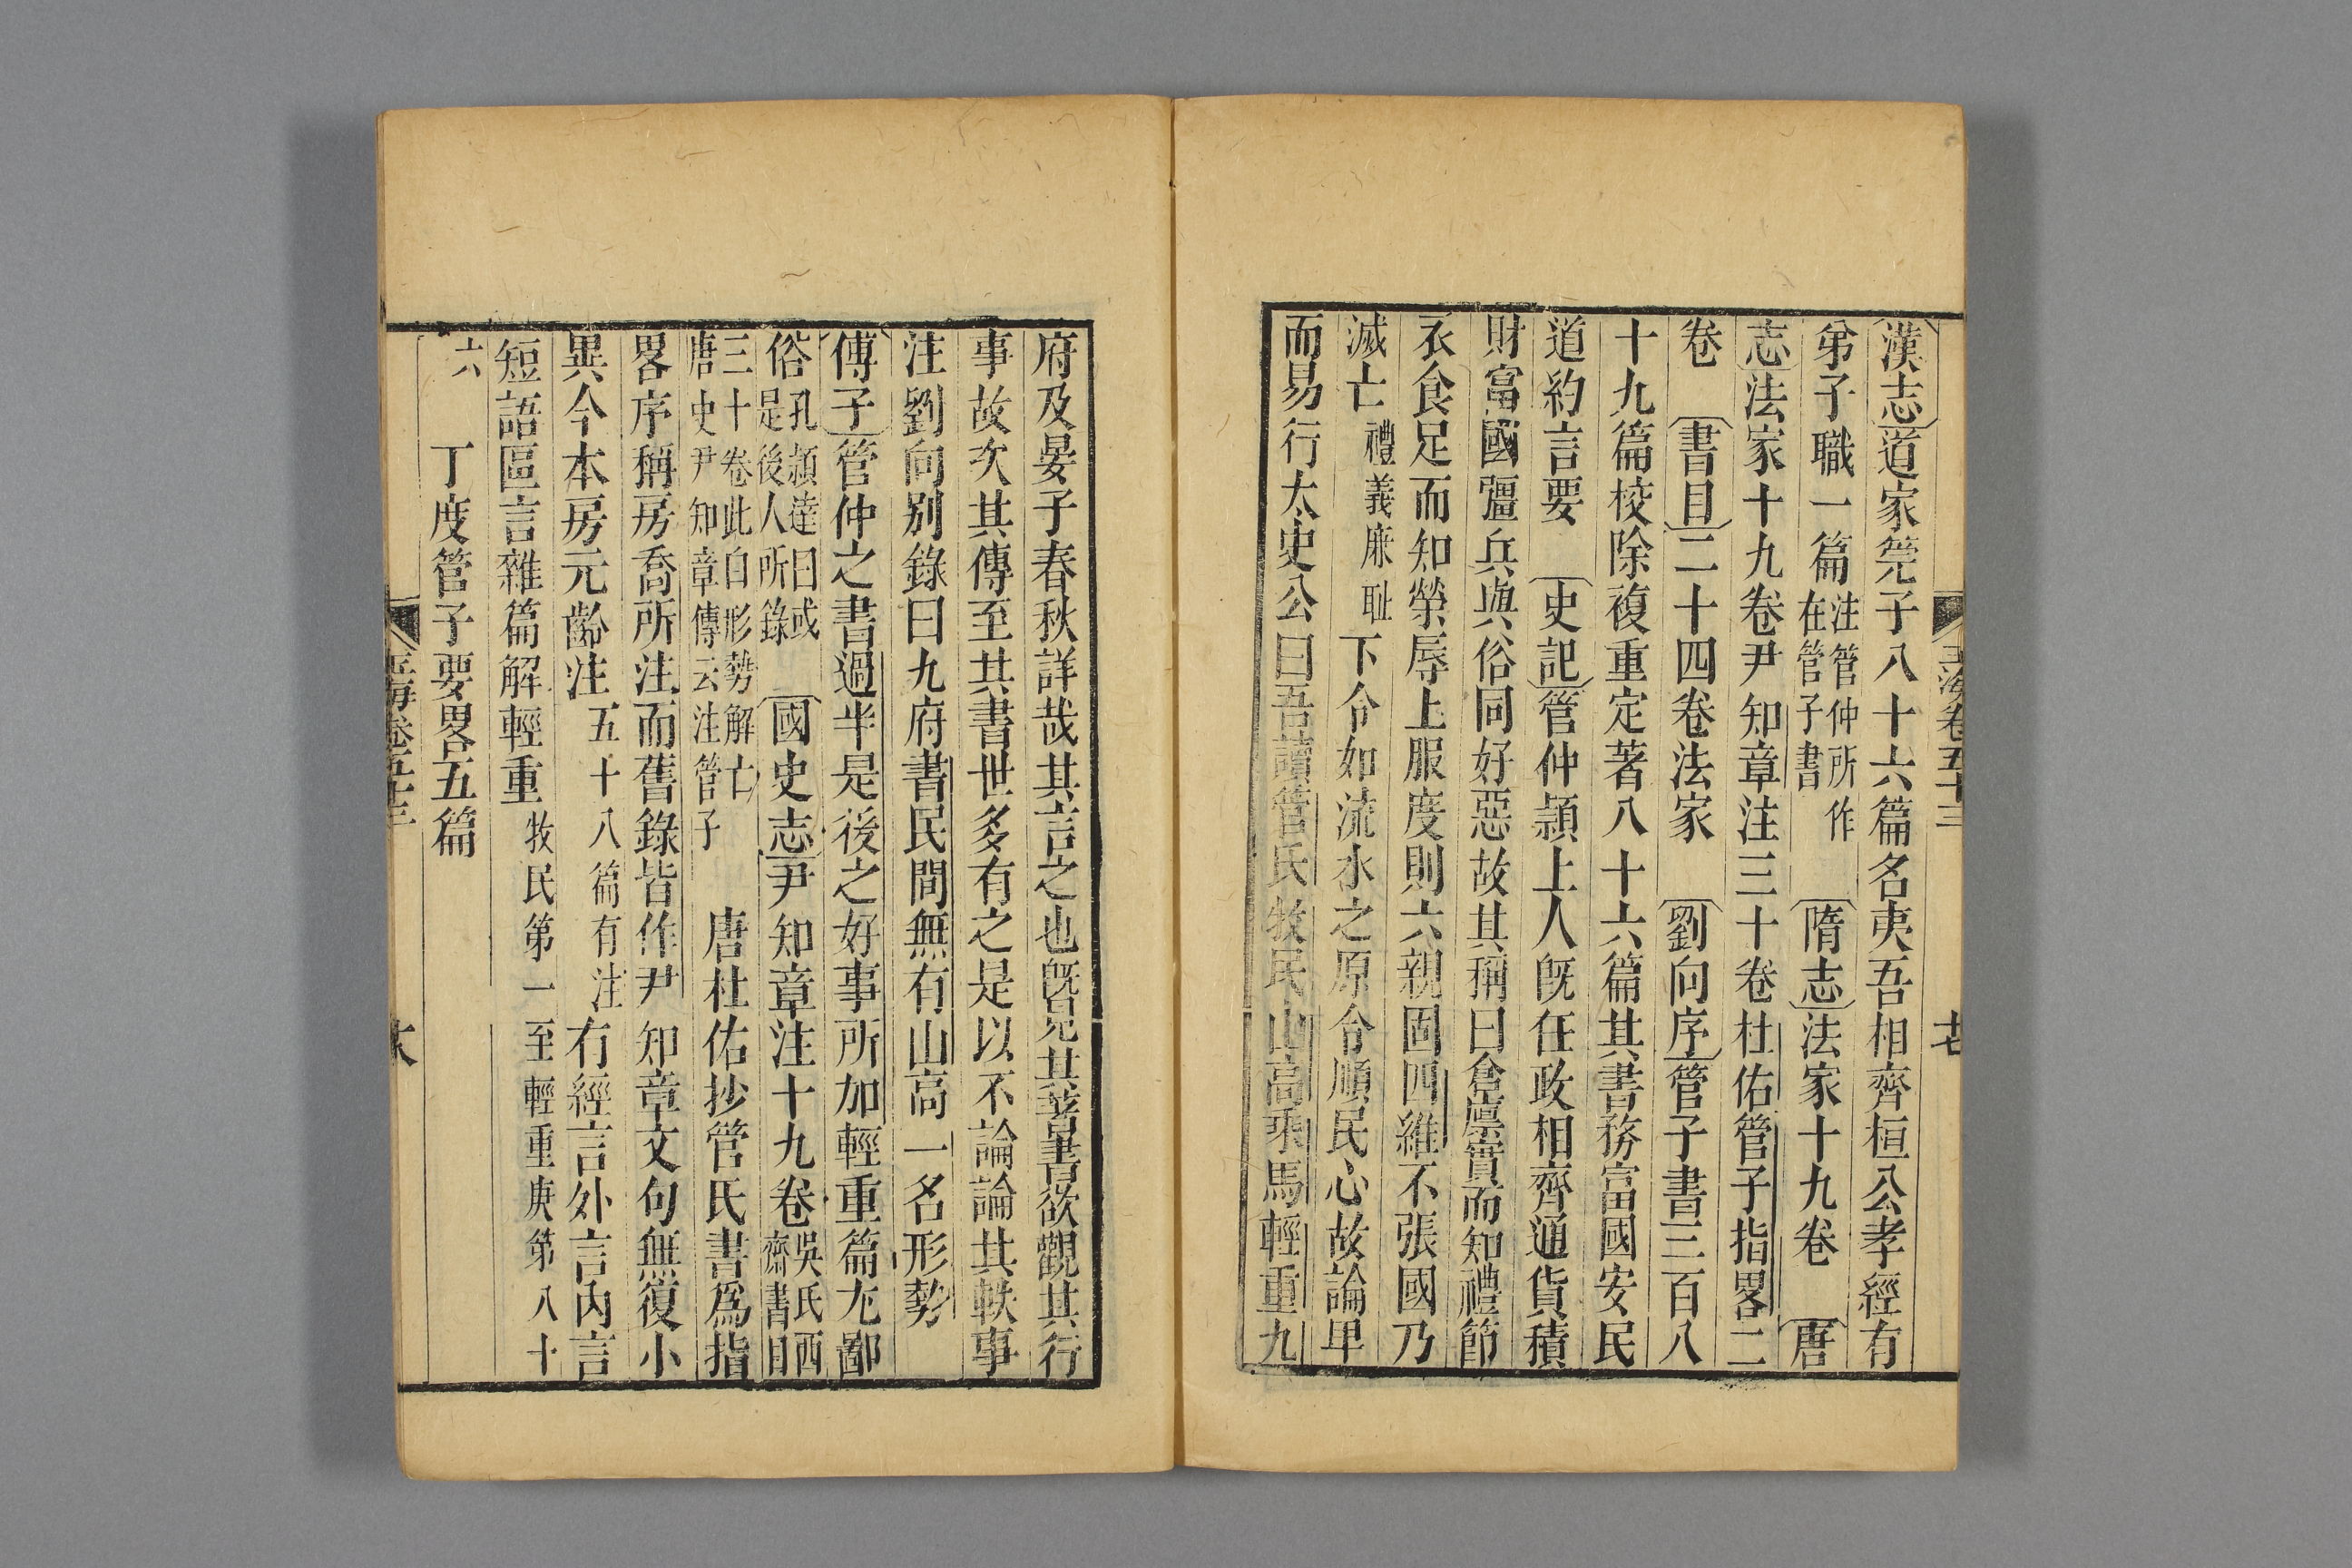 玉海卷五十三
漢志道家筦子八十六篇名夷吾相齊桓公孝經有
弟子職一篇注管仲所作在管子書 隋志法家十九卷 唐
志法家十九卷尹知章注三十卷杜佑管子指畧二
卷 書目二十四卷法家 劉向序管子書三百八
十九篇校除複重定著八十六篇其書務富國安民
道約言要 史記管仲潁上人旣任政相齊通貨積
財富國彊兵與俗同好惡故其稱曰倉廩實而知禮節
衣食足而知榮辱上服度則六親固四維不張國乃
滅亡禮義廉耻下令如流水之原令順民心故論卑
而易行太史公曰吾讀管氏牧民山高乘馬輕重九
府及晏子春秋詳哉其言之也旣見其著書欲觀其行
事故次其傳至其書世多有之是以不論論其軼事
注劉向別錄曰九府書民間無有山高一名形勢
傅子管仲之書過半是後之好事所加輕重篇尤鄙
俗孔頴達曰或是後人所錄 國史志尹知章注十九卷吳氏西齋書目
三十卷此自形勢解亡唐史尹知章傳云注管子 唐杜佑抄管氏書爲指
畧序稱房喬所注而舊錄皆作尹知章文句無復小
異今本房元齡注五十八篇有注有經言外言內言
短語區言雜篇解輕重牧民第一至輕重庚第八十
六 丁度管子要畧五篇
玉海卷五十三